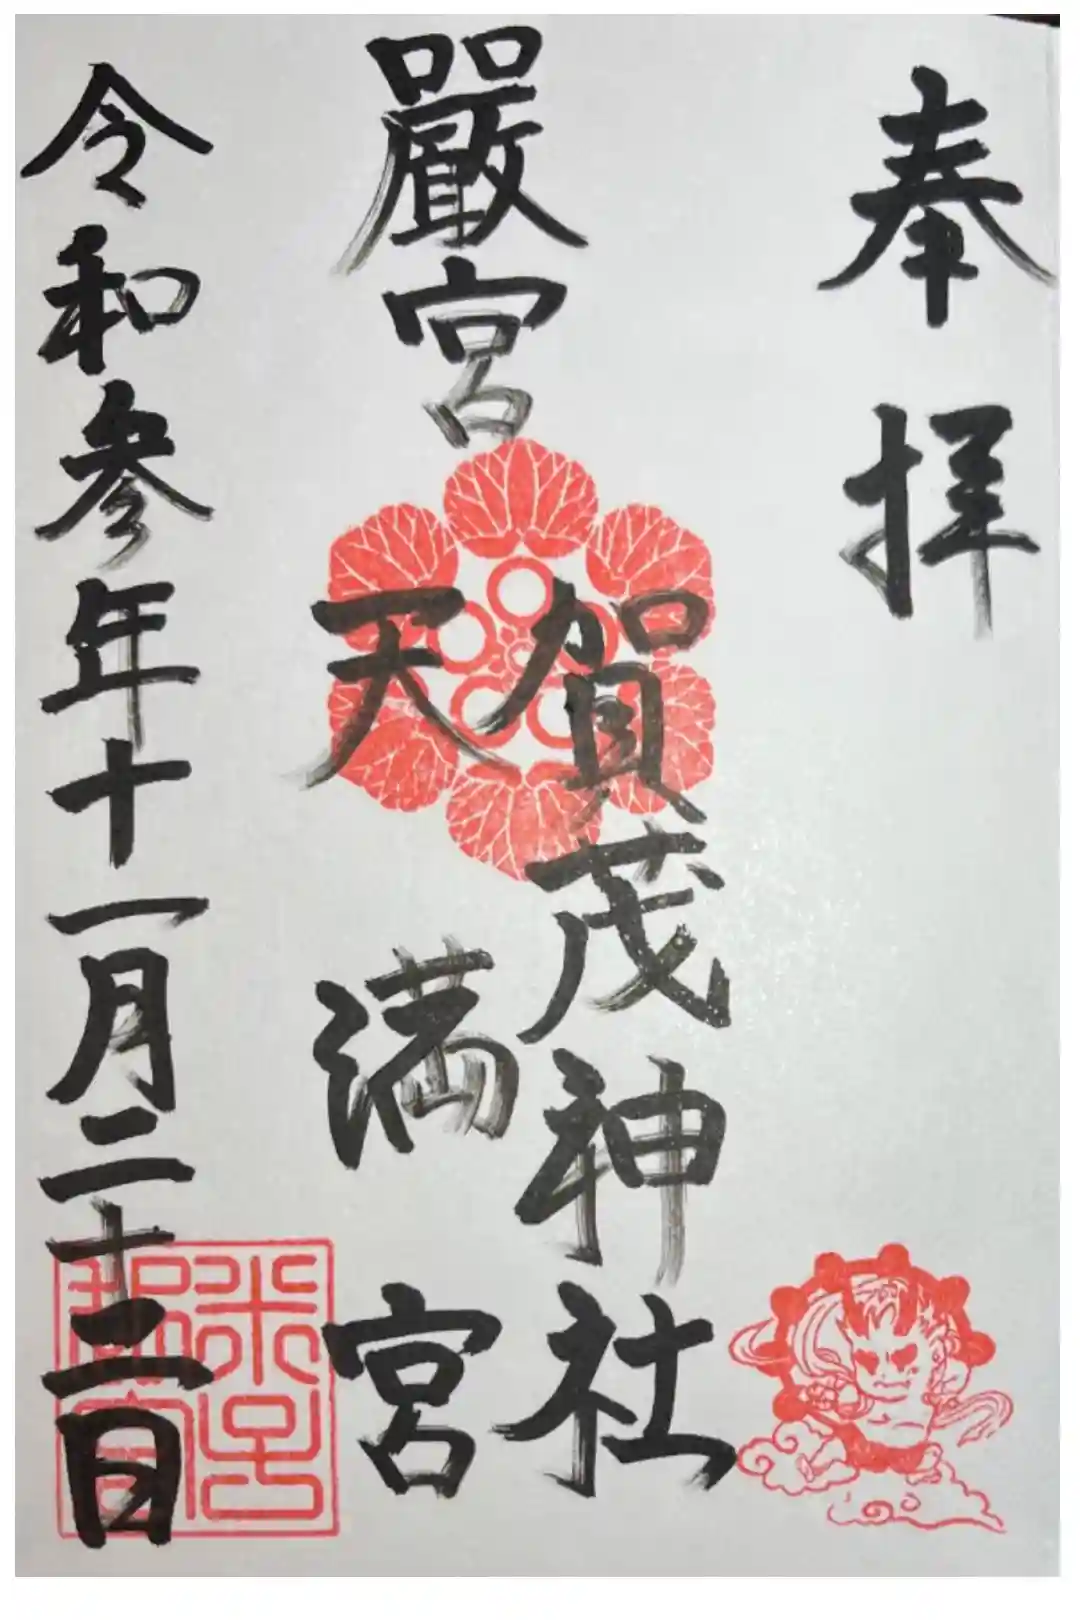 奉拝
嚴宮
賀茂神社
天満宮
令和参年十一月二十三日